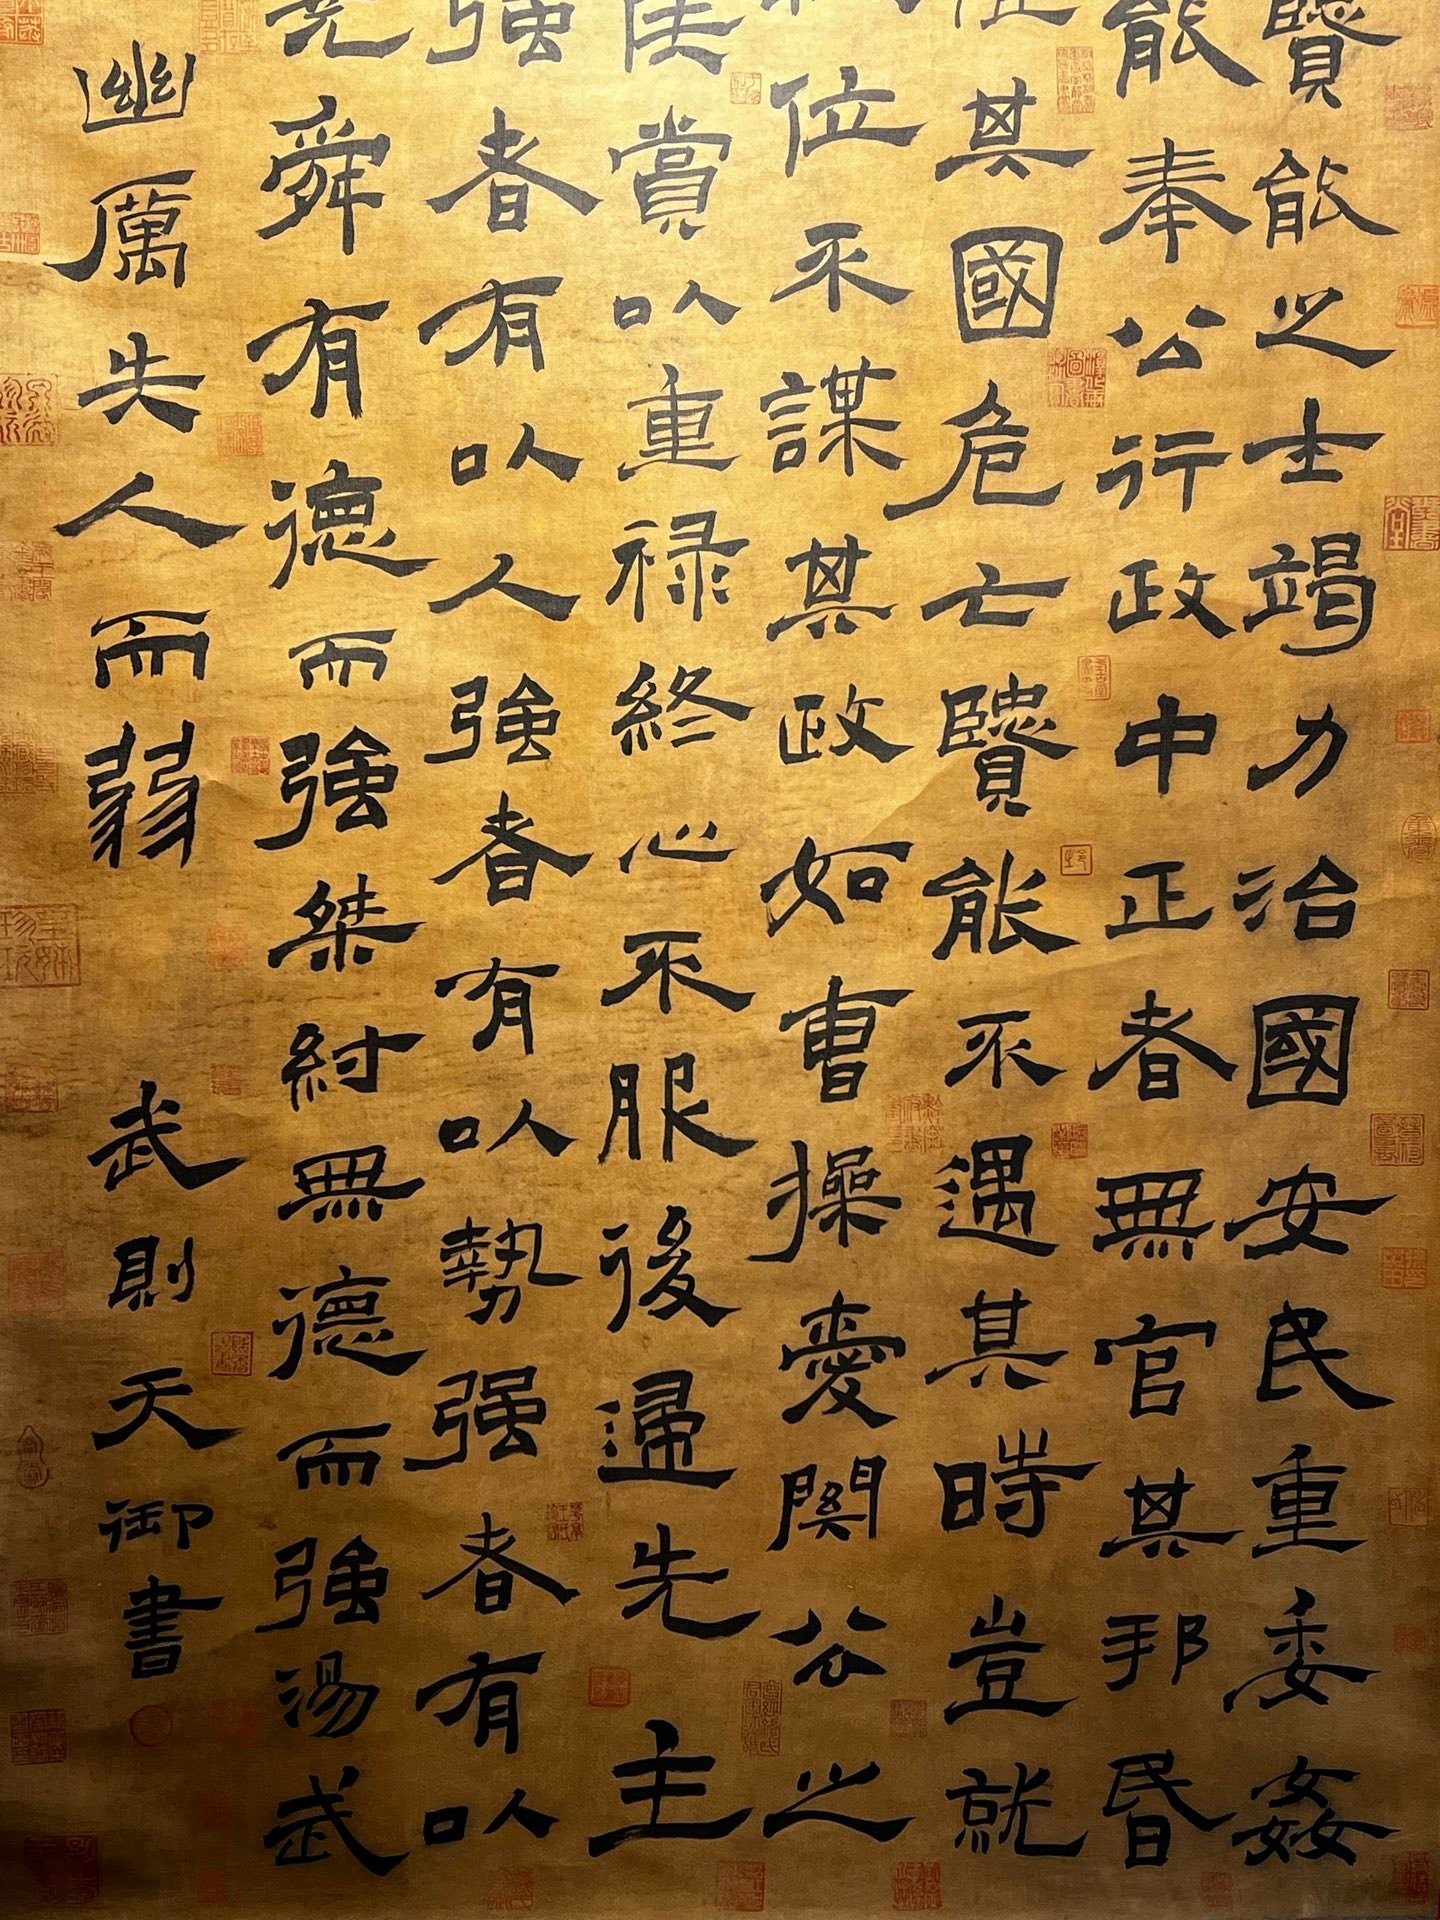 賢能之士竭力治國安民重委姦
能奉公行政中正者無官其邦昏
其國危亡賢能不遇其時豈就
位不謀其政如曹操愛関公之
賞以重禄終心不服後歸先主
強者有以人強者有以勢强者有以
堯舜有德而強桀紂無德而強湯武
幽厲失人而弱 武則天御書